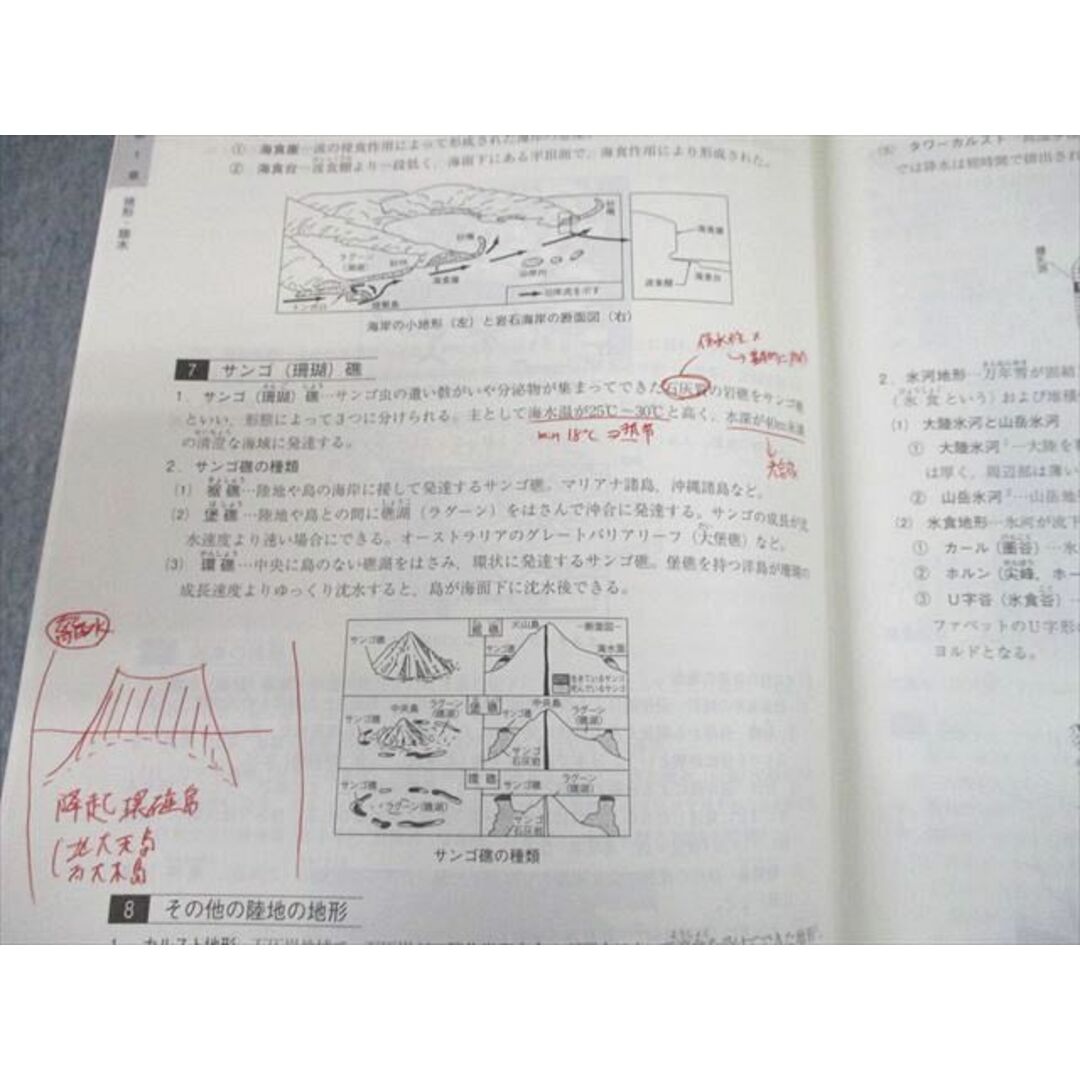 章
地形・陸水
① 海食崖…波の侵食作用によって形成された海岸の
② 海食台…波食棚より一段低く、海面下にある平坦面で、海食作用により形成された。
ラグーン
トンボロ
陸繋島
海食崖
沿岸州
沿岸流を示す
海食崖
波食棚
海食台
海岸の小地形（左）と岩石海岸の断面図（右）
7 サンゴ（珊瑚）礁
1．サンゴ（珊瑚）礁…サンゴ虫の遺い骸がいや分泌物が集まってできた石灰質の岩礁をサンゴ礁
といい、形態によって3つに分けられる。主として海水温が25℃～30℃と高く、水深が40m未満
の清澄な海域に発達する。
min 18℃
2．サンゴ礁の種類
(1) 裾礁…陸地や島の海岸に接して発達するサンゴ礁。マリアナ諸島、沖縄諸島など。
(2) 堡礁…陸地や島との間に礁湖（ラグーン）をはさんで沖合に発達する。サンゴの成長が沈
水速度より速い場合にできる。オーストラリアのグレートバリアリーフ（大堡礁）など。
(3) 環礁…中央に島のない礁湖をはさみ、環状に発達するサンゴ礁。堡礁を持つ洋島が珊瑚の
成長速度よりゆっくり沈水すると、島が海面下に沈水後できる。
サンゴ礁
裾礁
火山島
―断面図―
サンゴ礁
海水面
生きているサンゴ
死んでいるサンゴ
サンゴ礁
中央島
ラグーン
（礁湖）
堡礁
サンゴ礁
中央島
ラグーン
（礁湖）
サンゴ
石灰岩
サンゴ礁
ラグーン（礁湖）
環礁
サンゴ礁
ラグーン
（礁湖）
サンゴ
石灰岩
サンゴ礁の種類
隆起環礁島
北大東島
南大東島
8 その他の陸地の地形
1．カルスト地形
タワーカルスト
では降水は短時間で排出され
2．氷河地形…万年雪が固結
（氷食という）および堆積
(1) 大陸氷河と山岳氷河
① 大陸氷河…大陸を
は厚く、周辺部は薄い
② 山岳氷河…山岳地
(2) 氷食地形…氷河が流下
① カール（圏谷）…氷
② ホルン（尖峰、ホー
③ U字谷（氷食谷）…
ファベットのU字形の
ヨルドとなる。